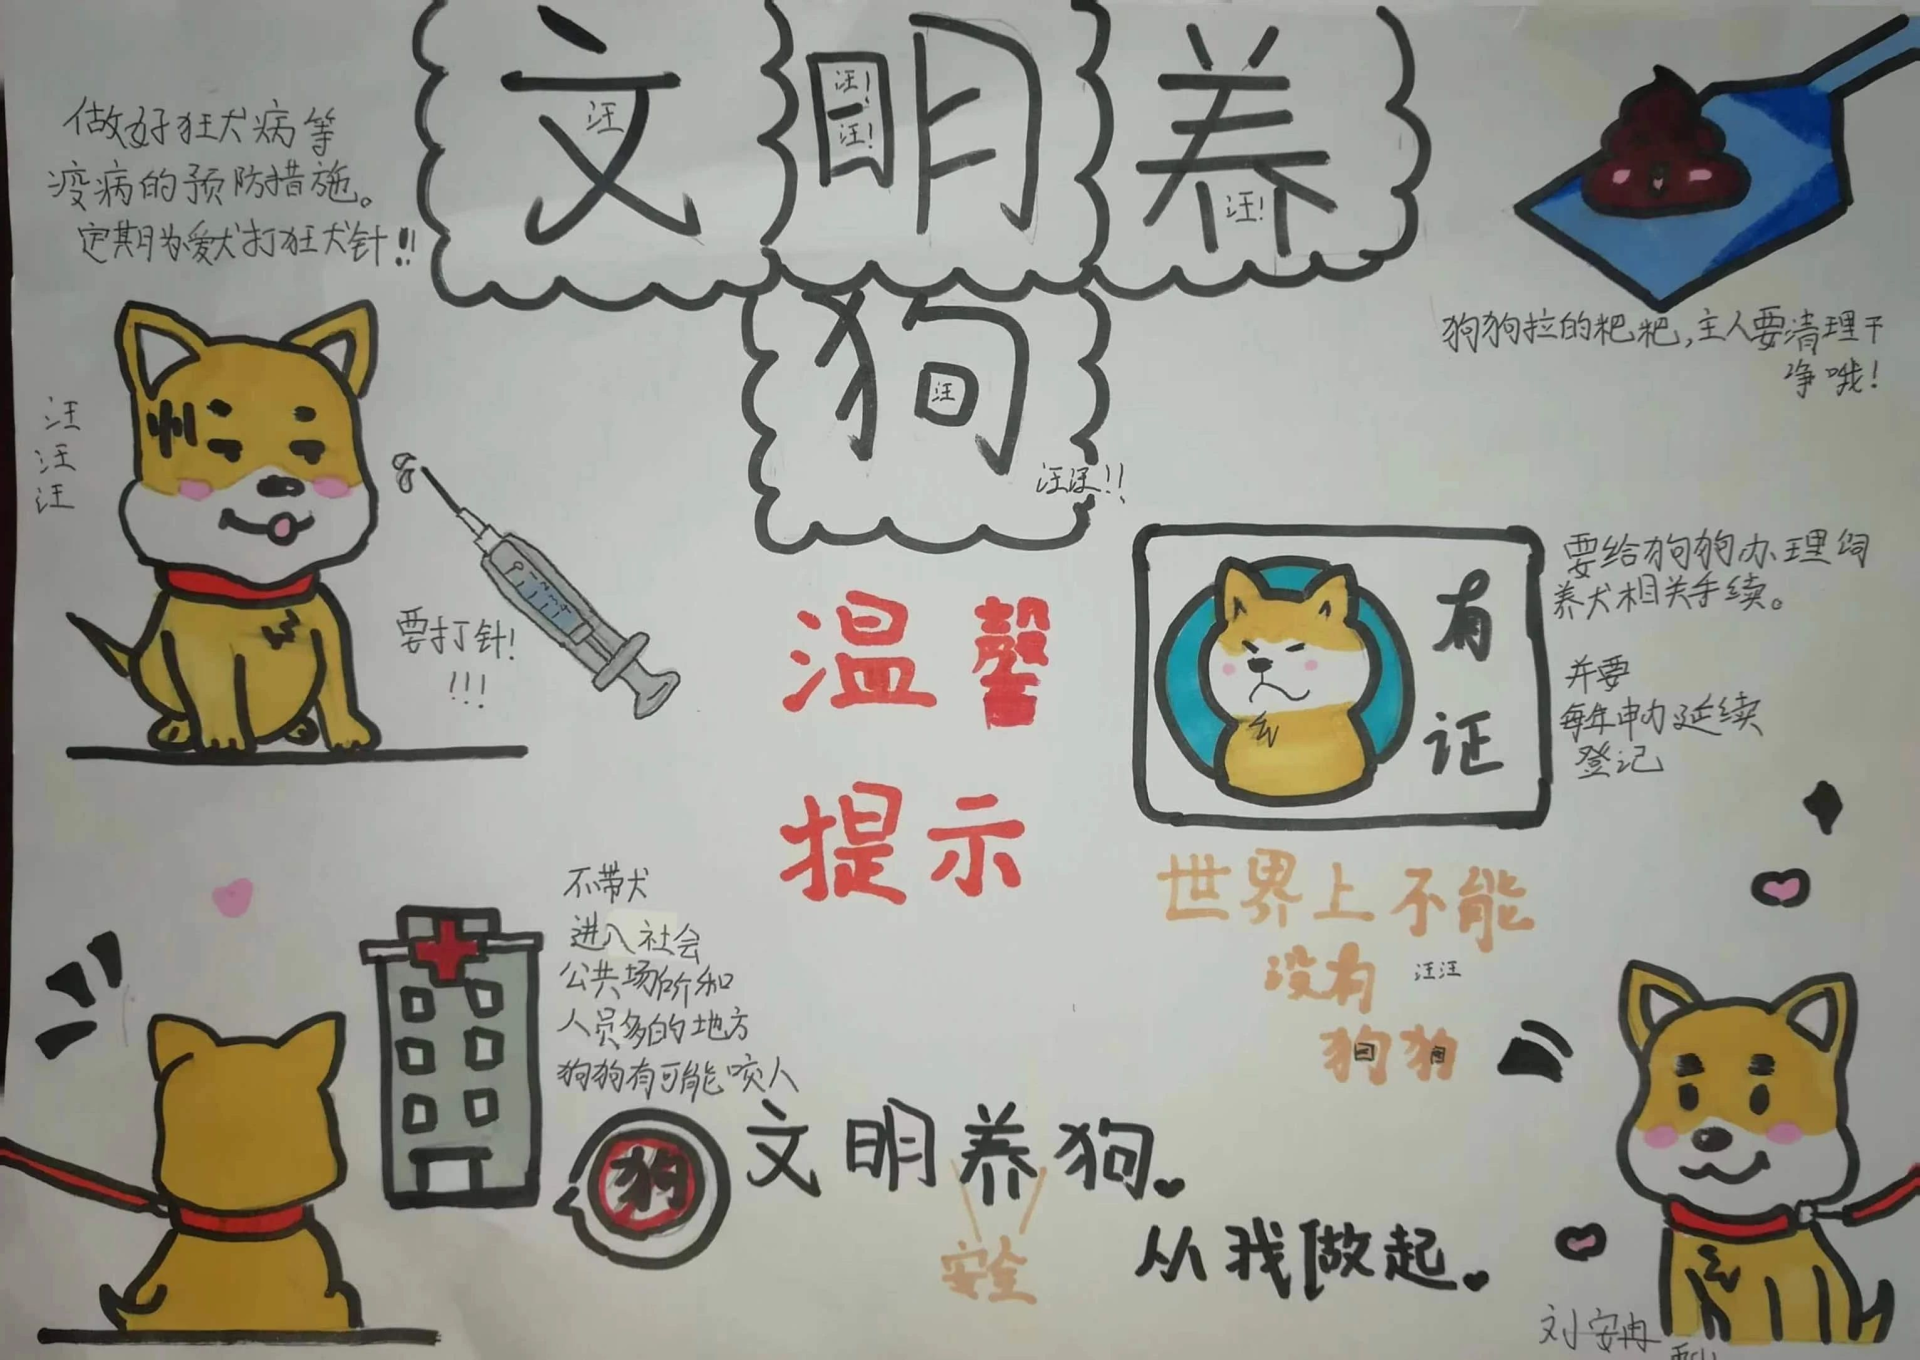 文明养
汪
汪!
汪!
汪!
狗
汪
汪汪!!
做好狂犬病等
疫病的预防措施。
定期为爱犬打狂犬针!!
汪
汪
汪
要打针!
!!!
狗狗拉的粑粑,主人要清理干
净哦!
温馨
提示
有
证
要给狗狗办理饲
养犬相关手续。
并要
每年申办延续
登记
世界上不能
没有
汪汪
狗狗
不带犬
进入社会
公共场所和
人员多的地方
狗狗有可能咬人
狗
文明养狗
安全
从我做起
刘安冉